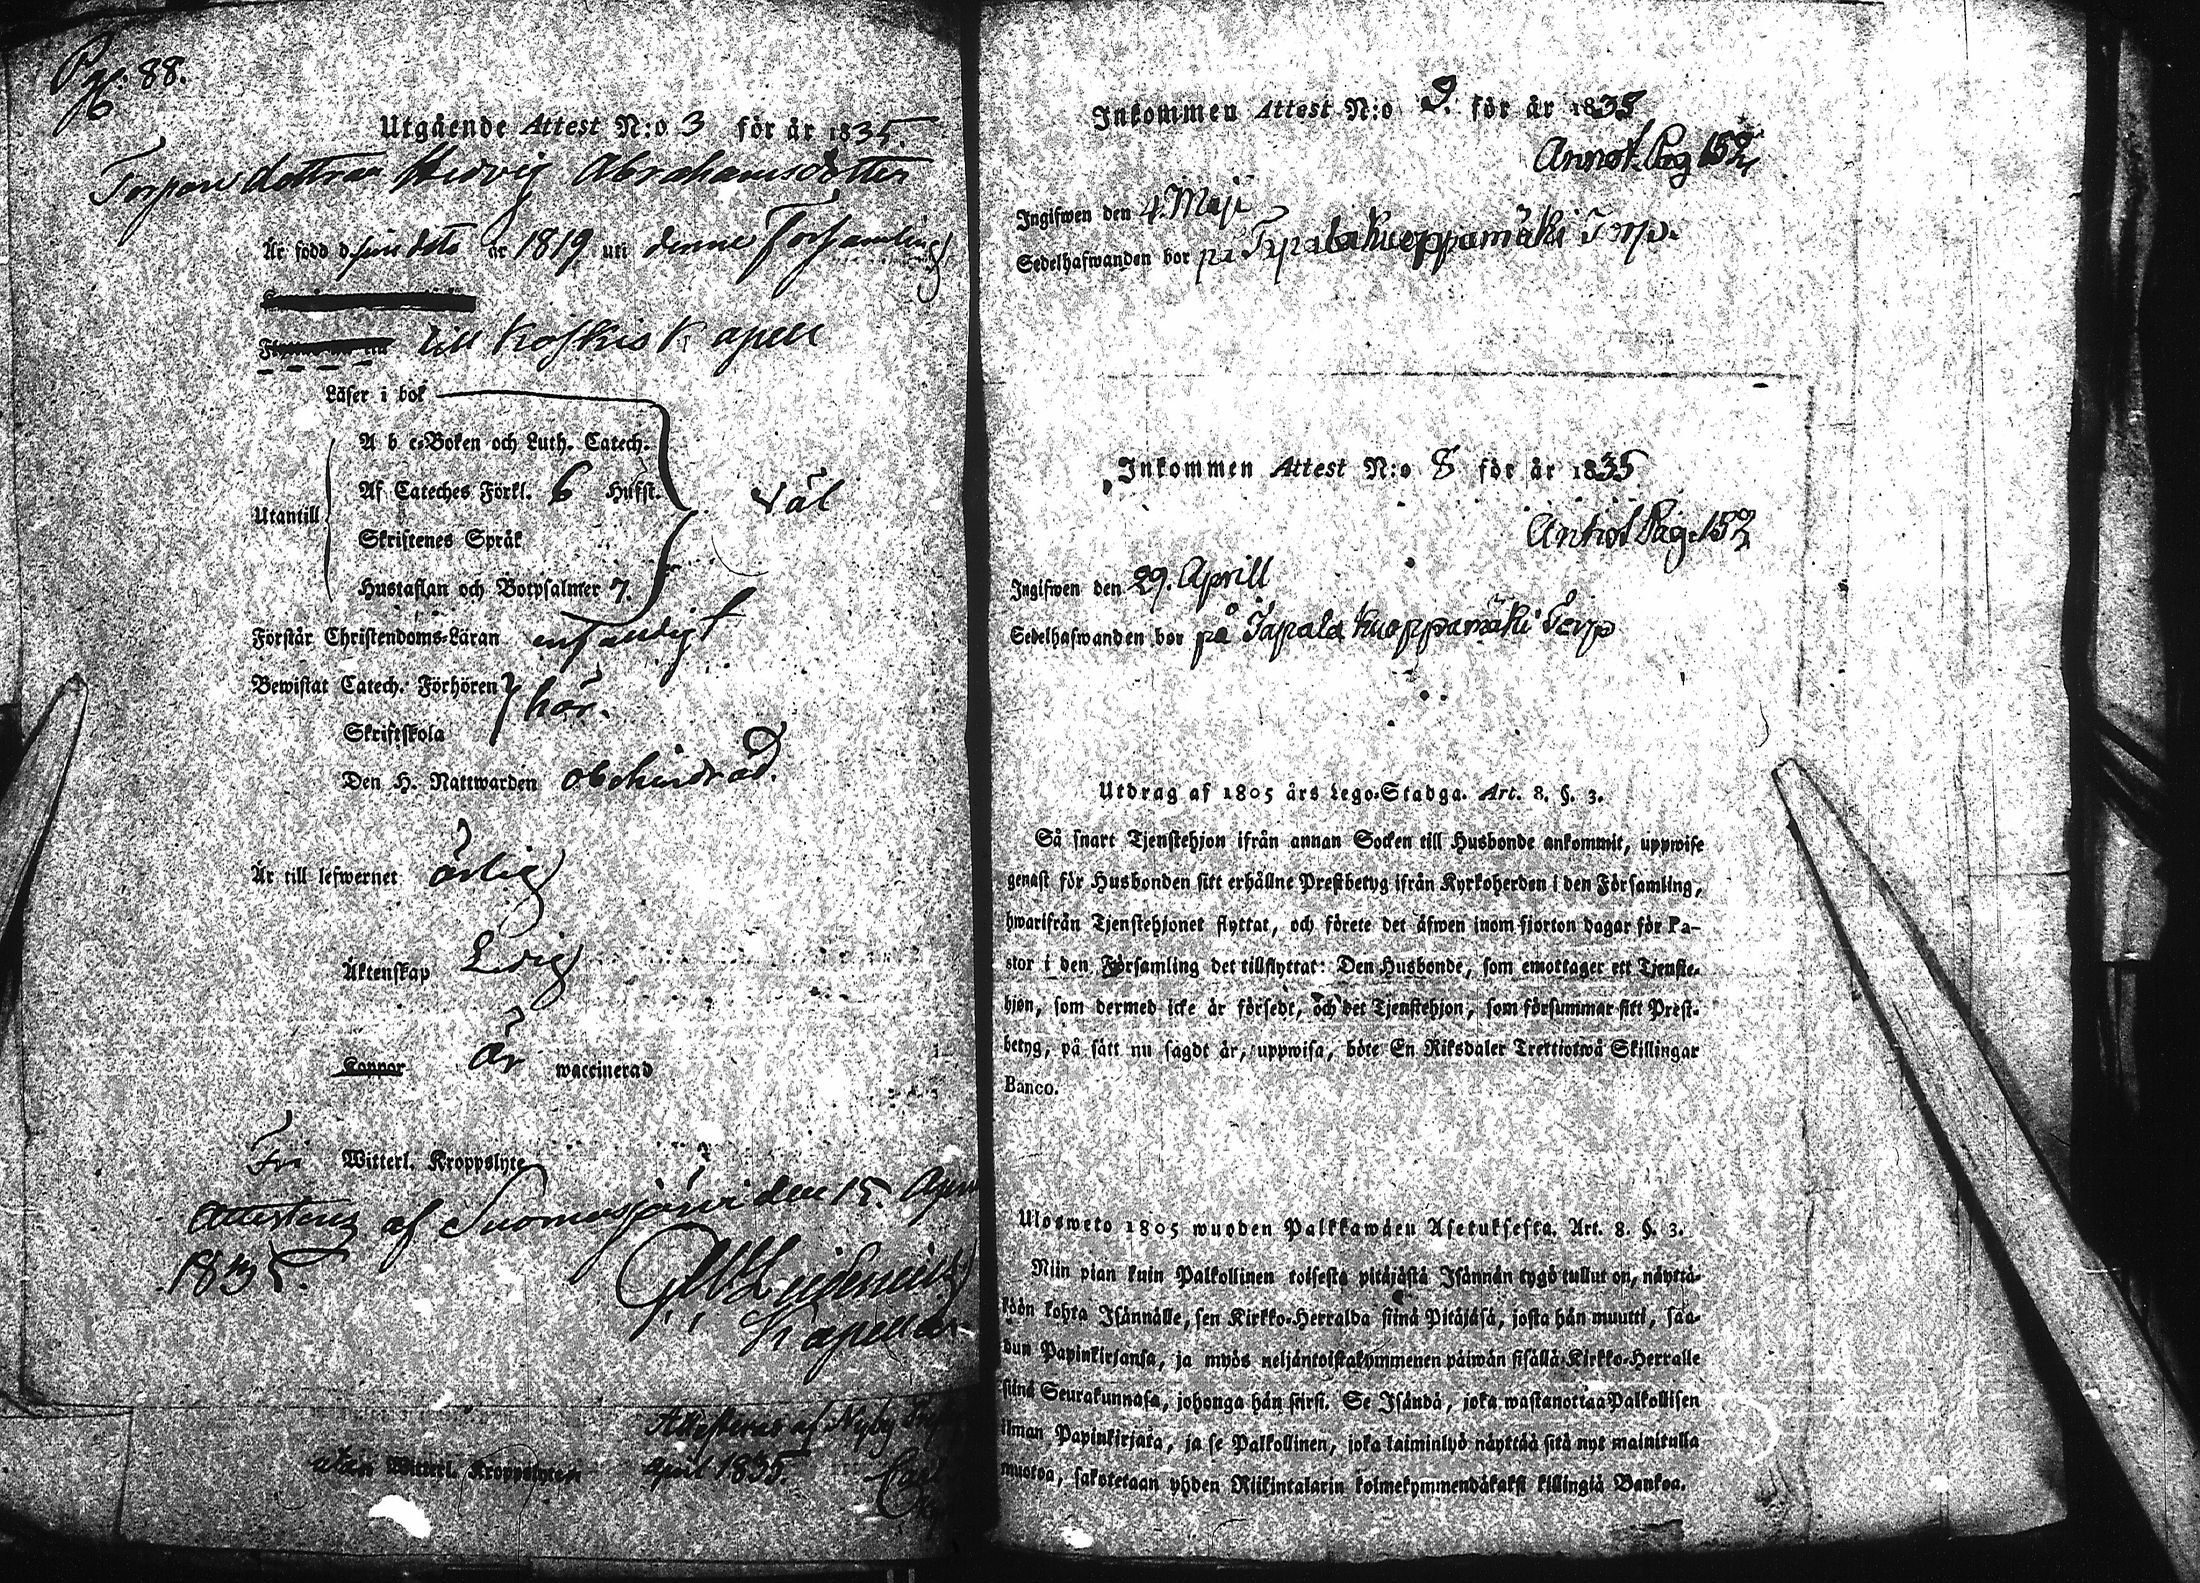 Pag. 88.
Utgående Attest N:o 3 för år 1835.
Torpare dottren Hedvig Abrahamsdotter
Är född d. år 1819 uti denne Församling
till Koskis Kapell
Läser i bok
A b c-Boken och Luth. Catech.
Af Cateches Förkl. 6 Hufst.
väl
Utantill
Skriftenes Språk
Hustaflan och Botpsalmer 7.
Förstår Christendoms-Läran enfaldigt
Bewistat Catech. Förhören
här.
Skriftskola
Den H. Nattwarden obehindrad.
Är till lefwernet ärlig
Äktenskap Ledig
Koppor Är waccinerad
Fri Witterl. Kroppslyte
Attesteras af Suomusjärvi den 15. April
1835.
Kapellan
Attesteras af Nyby
Witterl. Kroppslyten April 1835.
Inkommen Attest N:o 9. för år 1835
Annot. Pag 152
Ingifwen den 4. Maji
Sedelhafwanden bor på Tapala kuoppamäki Torp.
Inkommen Attest N:o 8 för år 1835
Annot Pag. 152
Ingifwen den 29. Aprill
Sedelhafwanden bor på Tapala kuoppamäki Torp
Utdrag af 1805 års Lego-Stadga. Art. 8. §. 3.
Så snart Tjenstehjon ifrån annan Socken till Husbonde ankommit, uppwise
genast för Husbonden sitt erhållne Prestbetyg ifrån Kyrkoherden i den Församling,
hwarifrån Tjenstehjonet flyttat, och förete det äfwen inom fjorton dagar för Pa-
stor i den Församling det tillflyttat: Den Husbonde, som emottager ett Tjenste-
hjon, som dermed icke är försedt, och det Tjenstehjon, som försummar sitt Prest-
betyg, på sätt nu sagdt är, uppwisa, böte En Riksdaler Trettiotwå Skillingar
Banco.
Ulosweto 1805 wuoden Palkkawäen Asetuksesta. Art. 8. §. 3.
Niin pian kuin Palkollinen toisesta pitäjästä Isännän tygö tullut on, näyttä-
köön kohta Isännälle, sen Kirkko-Herralda siinä Pitäjäsä, josta hän muutti, saa-
dun Papinkirjansa, ja myös neljäntoistakymmenen päiwän sisällä Kirkko-Herralle
siinä Seurakunnasa, johonga hän siirsi. Se Isändä, joka wastanottaa Palkollisen
ilman Papinkirjata, ja se Palkollinen, joka laiminlyö näyttää sitä nyt mainitulla
muotoa, sakotetaan yhden Riikintalarin kolmekymmendäkaksi killingiä Bankoa.